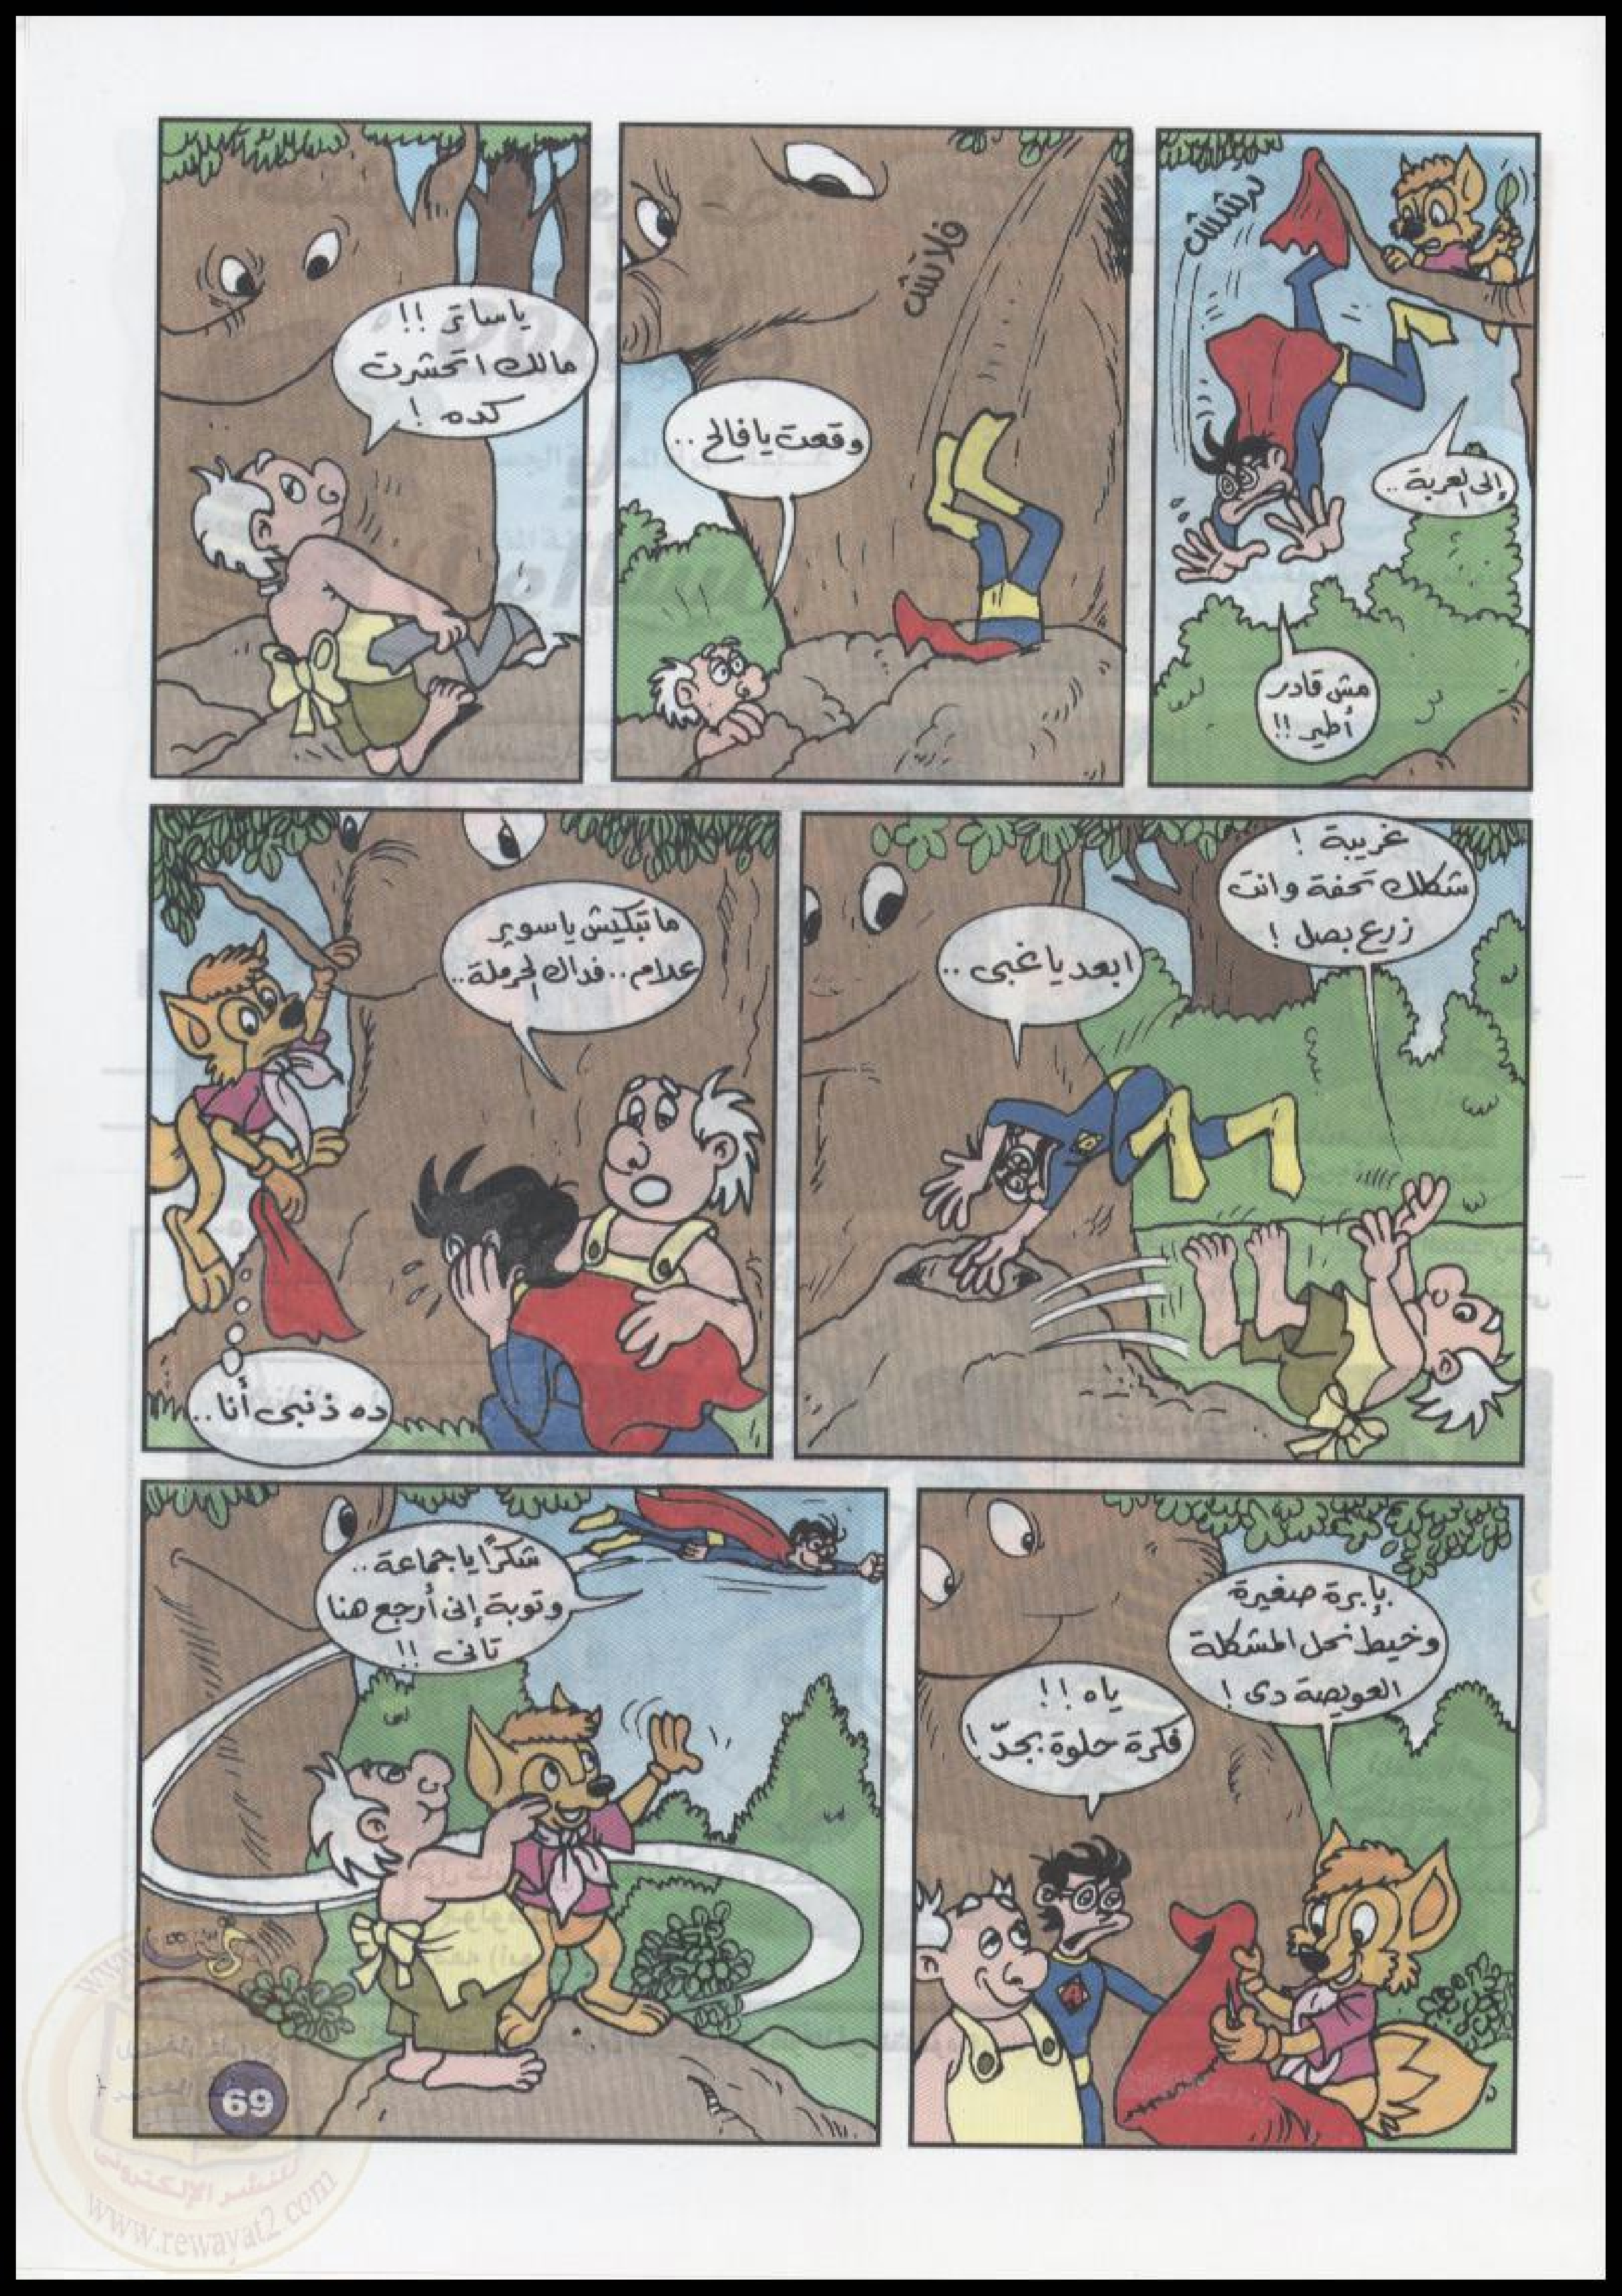 إلى العربة..
مش قادر
أطير!!
فلاتش
وقعت يا فالح..
يا ساتر!!
مالك اتحشرت
كده!
غريبة!
شكلك تحفة وانت
زرع بصل!
ابعد يا غبى..
ما تبكيش يا سوبر
علام.. فداك الحرملة..
ده ذنبى أنا..
بإبرة صغيرة
وخيط نحل المشكلة
العويصة دى!
ياه!!
فكرة حلوة بجدّ!
شكرًا يا جماعة..
وتوبة إنى أرجع هنا
تانى!!
69
للنشر الإلكترونى
www.rewayat2.com